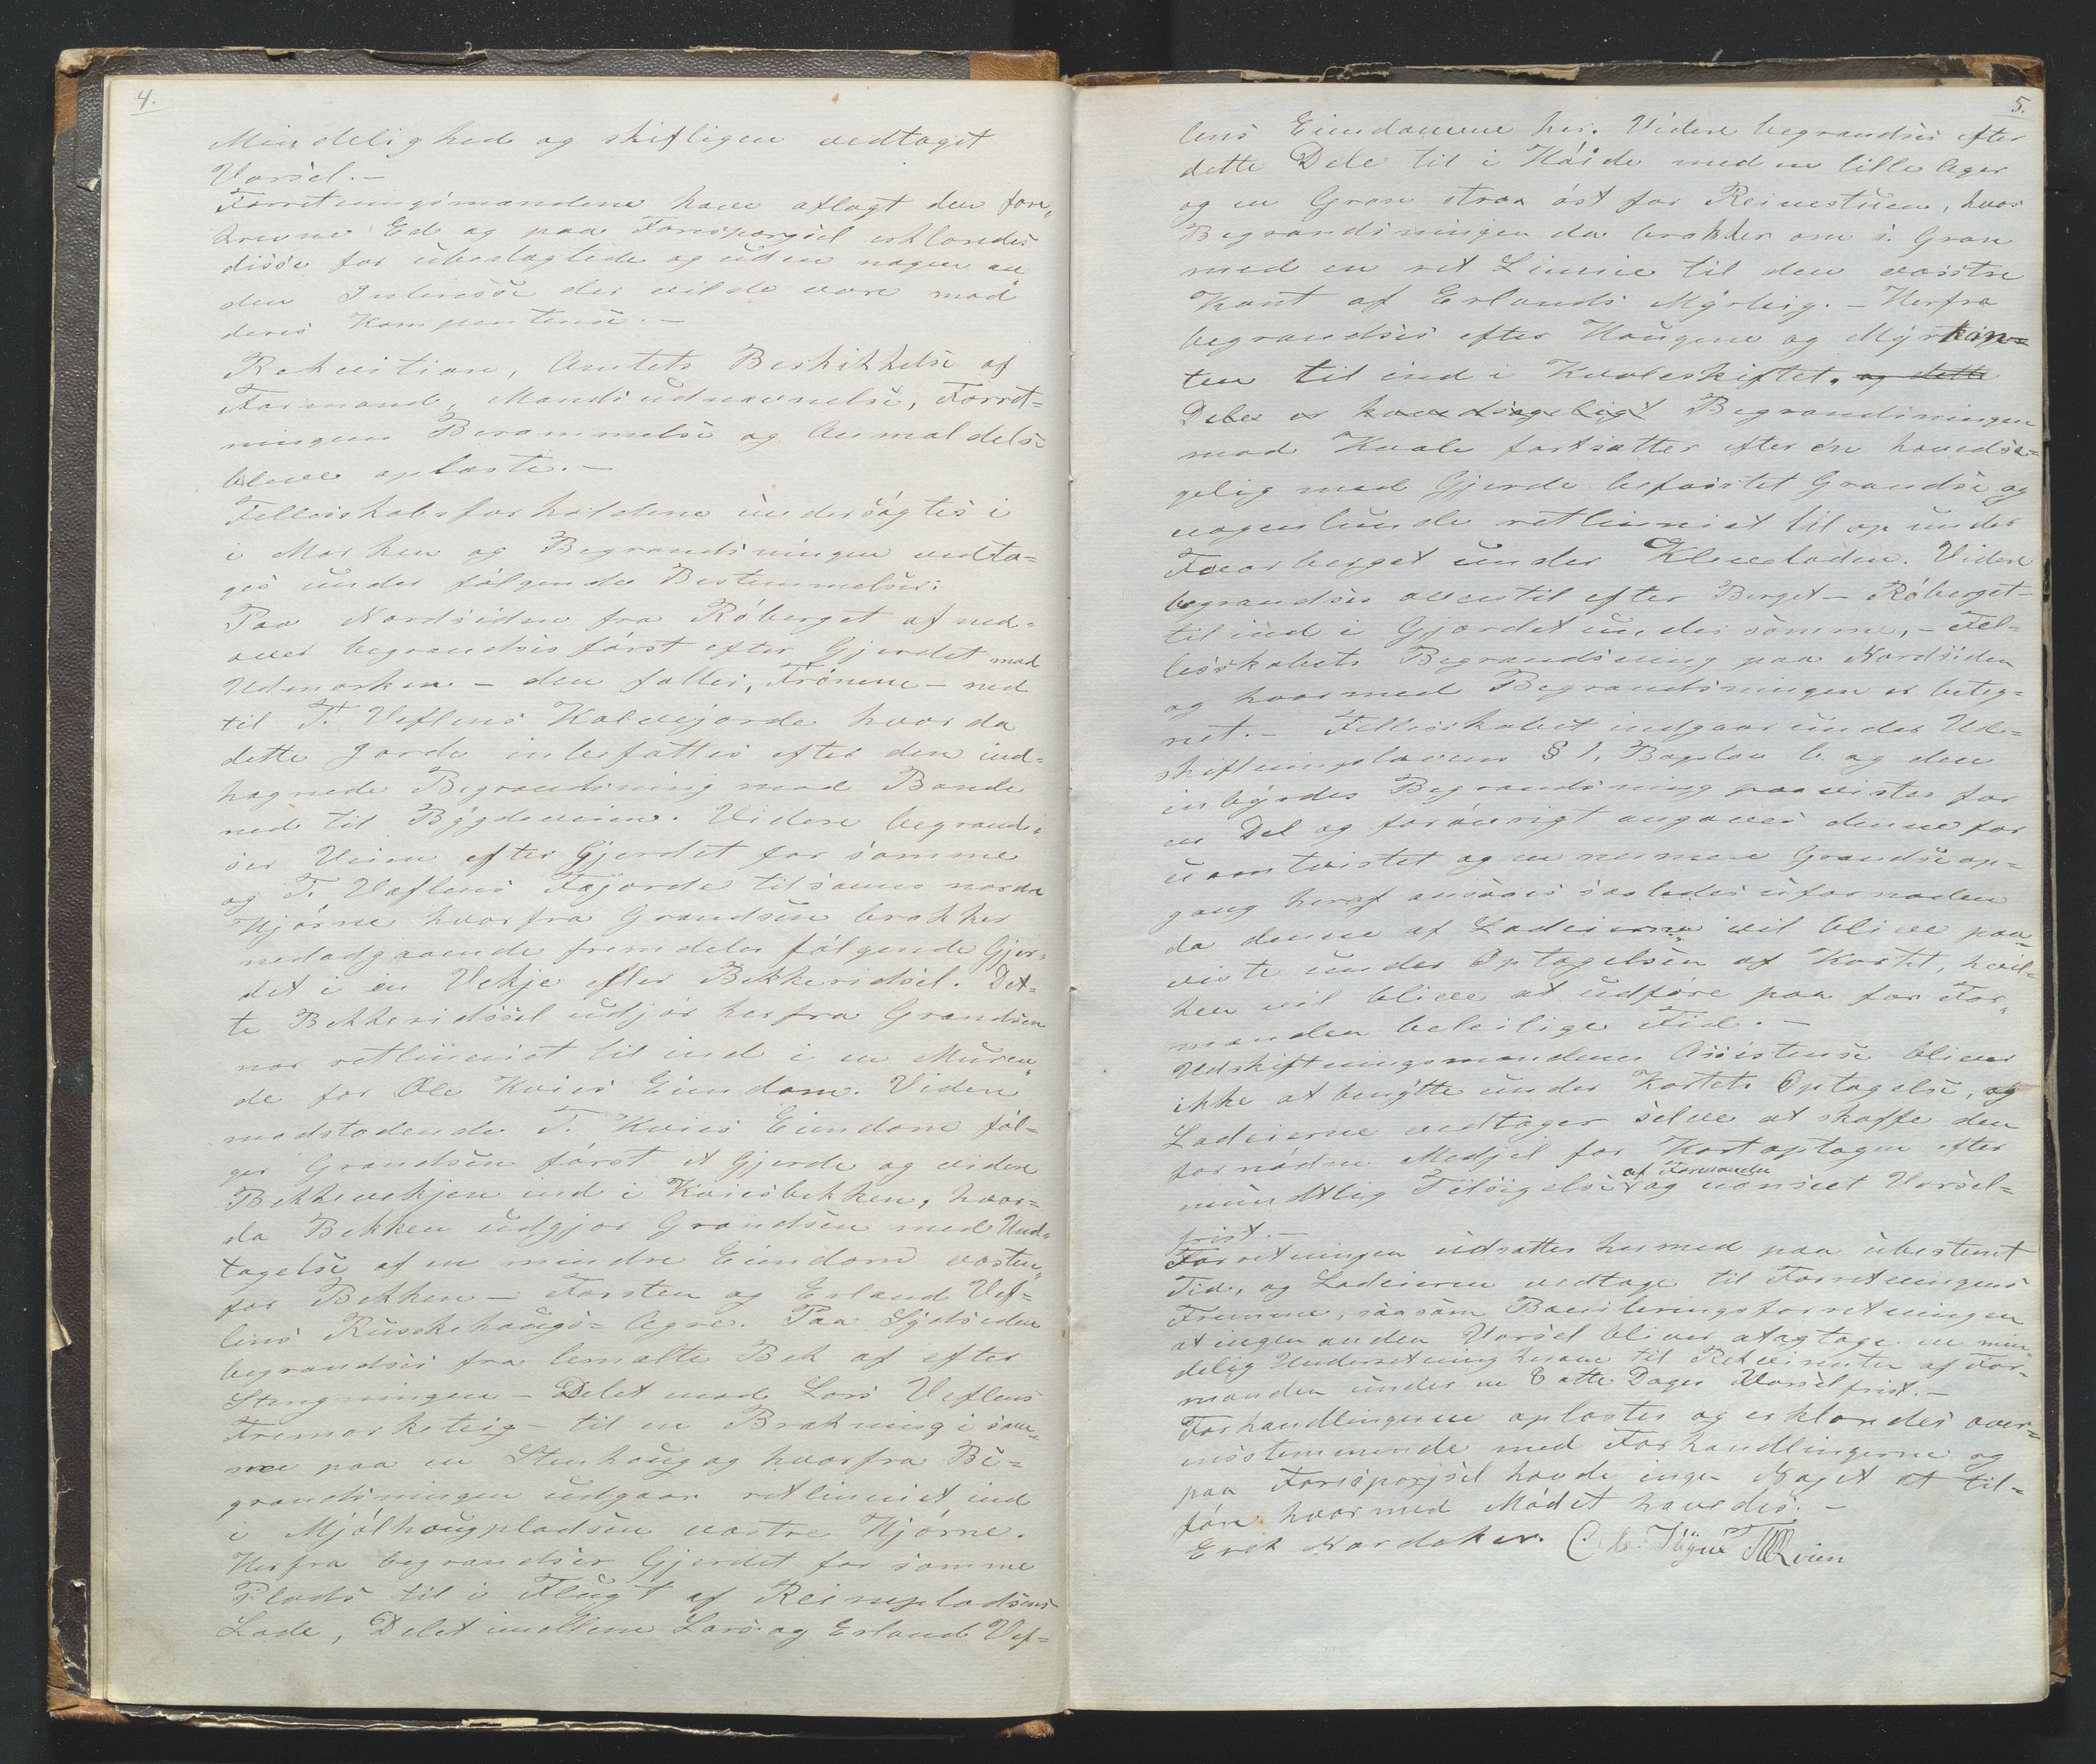 4.
Mindelighed og skifligen vedtaget
Varsel.—
Forretningsmændene have aflagt den fore„
krevne Ed og paa Forespørgsel erklæredes
disse for ubeslægtede og uden nogen an
den Interesse der vilde være mod
deres Kompentense.—
Rekvition, Amtets Beskikkelse af
Formand, Mandsudnævnelse, Forret=
ningens Berammelse og Anmeldelse
bleve oplæste.—
Fellesskabsforholdene undersøgtes i
i Marken og Begrændsningen vedta=
ges under følgende Bestemmelser:
Paa Nordsiden fra Røberget af ned=
over begrændses først efter Gjerdet mod
Udmarken — den falles, Trønene — ned
til T. Veflens Kalvejorde hvor da
dette Jorde inbefattes efter den ind=
hegnede Begrændsning mod Bande
ned til Bygdeveien. Videre begrænd=
ser Veien efter Gjerdet for samme
og T. Veflens Fæjorde tilsamme nordre
Hjørne hvorfra Grændsen brækker
nedadgaaende fremdeles følgende Gjer=
det i en Vekje efter Bekkeridsel. Det=
te Bekkeridsel udjør herfra Grændsen
nor retliniet til ind i en Muren„
de for Ole Kvies Eiendom. Videre
modstødende T. Kvies Eiendom føl=
ger Grændsen først et Gjerde og videre
Bekkevekjen ind i Kviesbekken, hvor=
da Bekken udgjør Grændsen med Und=
tagelse af en mindre Eiendom vesten„
for Bekken — Torsten og Erland Vef=
lens Ruskehaugs=Agre. Paa Sydsiden
begrændses fra bemælte Bek af efter
Stengningen — Delet mod Lars Veflens
Fremarkteig — til en Brækning i sam=
me paa en Stenhaug og hvorfra Be=
grændsningen udgaar retliniet ind
i Mjølhaugpladsen vestre Hjørne.
Herfra begrændser Gjerdet for samme
Plads til i Flugt af Reinepladsens
Lade, Delet imellem Lars og Erland Vef=
5.
lens Eiendomme her. Videre begrændses efter
dette Dele til i Høide med en lille Ager
og en Gran strax øst for Reinestuen, hvor
Begrændsningen da brækker om s. Gran
med en ret Linie til den vestre
Kant af Erlands Myrteig. — Herfra
begrændses efter Haugene og Myrkan=
ten til ind i Kvaleskiftet. og dette
Deles er hovedsageligt Begrændsningen
mod Kvale fortsætter efter en hovedsa=
gelig med Gjerde befæstet Grændse og
nogenlunde retliniet til op under
Fværberget under Kleveladen. Videre
begrændses oventil efter Berget — Røberget —
til ind i Gjærdet under samme, — Fel=
lesskabets Begrændsning paa Nordsiden
og hvormed Begrændsningen er beteg=
net. — Fellesskabet indgaar under Ud=
skiftningslovens § 1, Bogstav b. og den
inbyrdes Begrændsning paavistes for
en Del og forøvrigt angaves denne for
uomtvistet og en nermere Grændseop=
gang heraf ansees saaledes ufornøden
da denne af Lodeierne vil blive paa=
viste under Optagelsen af Kartet, hvil=
ken vil blive at udføre paa for For„
manden beleilige Tid.—
Udskiftningsmændenes Assistense bliver
ikke at benytte under Kartets Optagelse, og
Lodeierne vedtager selve at skaffe den
fornødne Medhjel for Kartoptagen efter
mundtlig Tilsigelse af Formanden og uanseet Varsel=
frist.—
Forretningen udsættes hermed paa ubestemt
Tid, og Lodeierne vedtage til Forretningens
Fremme, saasom Boniteringsforretningen
at ingen anden Varsel bliver atagtage en min„
delig Underretning herom til Rekvirenten af For=
manden under en 8 otte Dages Varselfrist.—
Forhandlingerne oplæstes og erklæredes over=
ensstemmende med Forhandlingerne og
paa Forespørjsel havde ingen Noget at til=
føre hvormed Mødet hævdes.—
Erek Nordaker